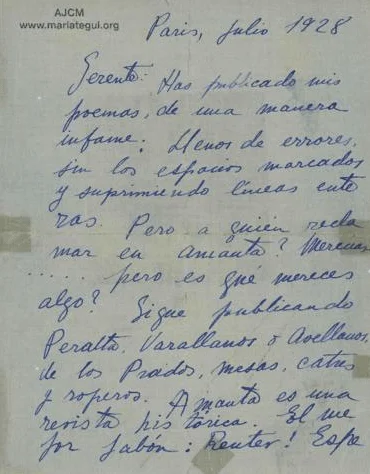 AJCM
www.mariategui.org
Paris, julio 1928
Gerente: Has publicado mis
poemas, de una manera
infame: Llenos de errores,
sin los espacios marcados
y suprimiendo líneas ente
ras. Pero a quién recla
mar en amauta? Mereces
..... pero es qué mereces
algo? Sigue publicando
Peralta, Varallanos o Avellanos,
de los Prados, mesas, catres
y roperos. Amauta es una
revista his tórica. El me
jor jabón: Reuter! Espe